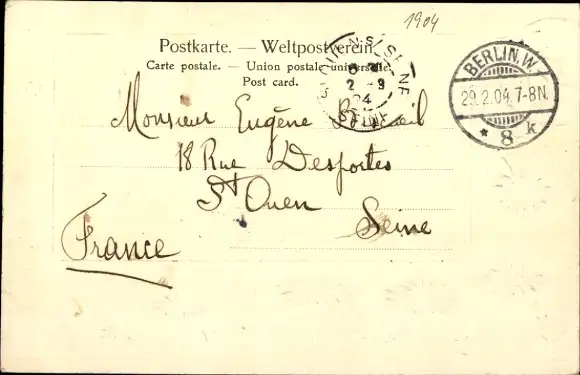 1904
Postkarte. — Weltpostverein.
Carte postale. — Union postale universelle.
Post card.
ST OUEN S/ SEINE
2 - 3
04
SEINE
BERLIN. W
29.2.04.7-8N.
* 8 k
Monsieur Eugène
18 Rue Desportes
St Ouen
Seine
France